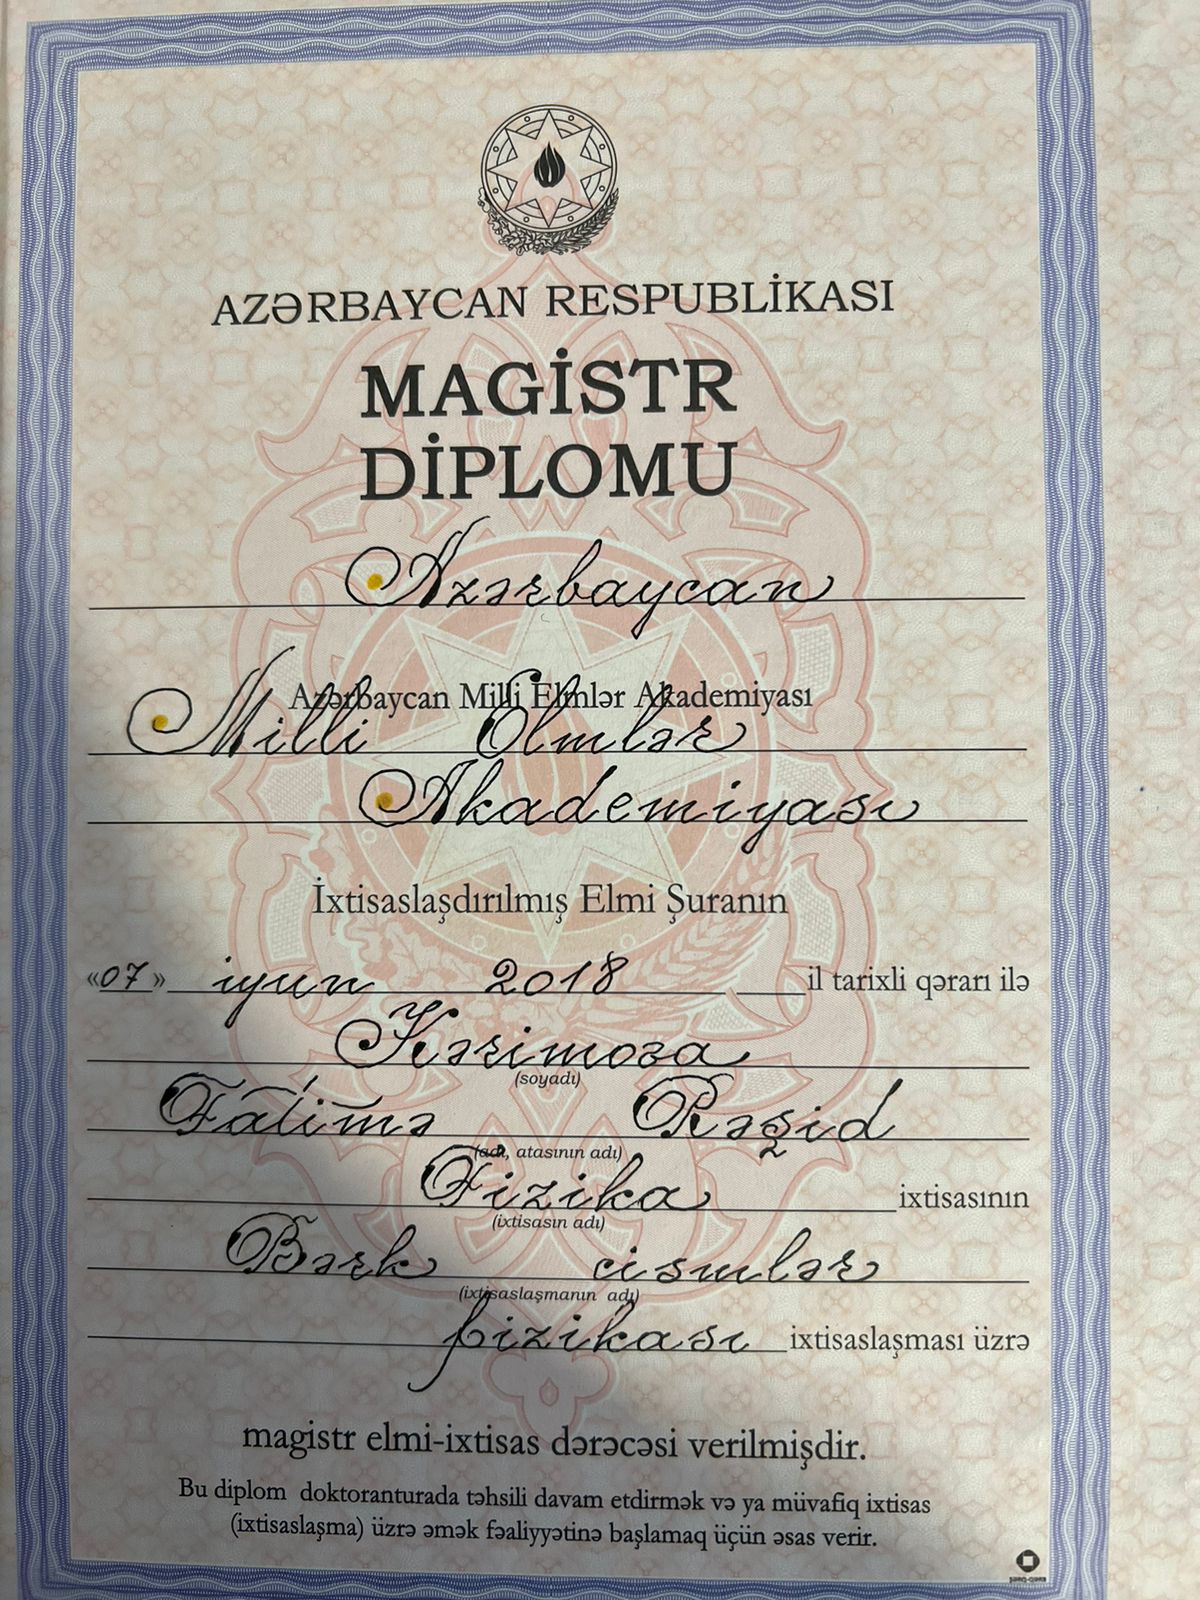 AZƏRBAYCAN RESPUBLİKASI
MAGİSTR
DİPLOMU
Azərbaycan
Azərbaycan Milli Elmlər Akademiyası
Milli Elmlər
Akademiyası
İxtisaslaşdırılmış Elmi Şuranın
«07» iyun 2018 il tarixli qərarı ilə
Kərimova
(soyadı)
Fatimə Rəşid
(adı, atasının adı)
Fizika ixtisasının
(ixtisasın adı)
Bərk cismlər
(ixtisaslaşmanın adı)
fizikası ixtisaslaşması üzrə
magistr elmi-ixtisas dərəcəsi verilmişdir.
Bu diplom doktoranturada təhsili davam etdirmək və ya müvafiq ixtisas
(ixtisaslaşma) üzrə əmək fəaliyyətinə başlamaq üçün əsas verir.